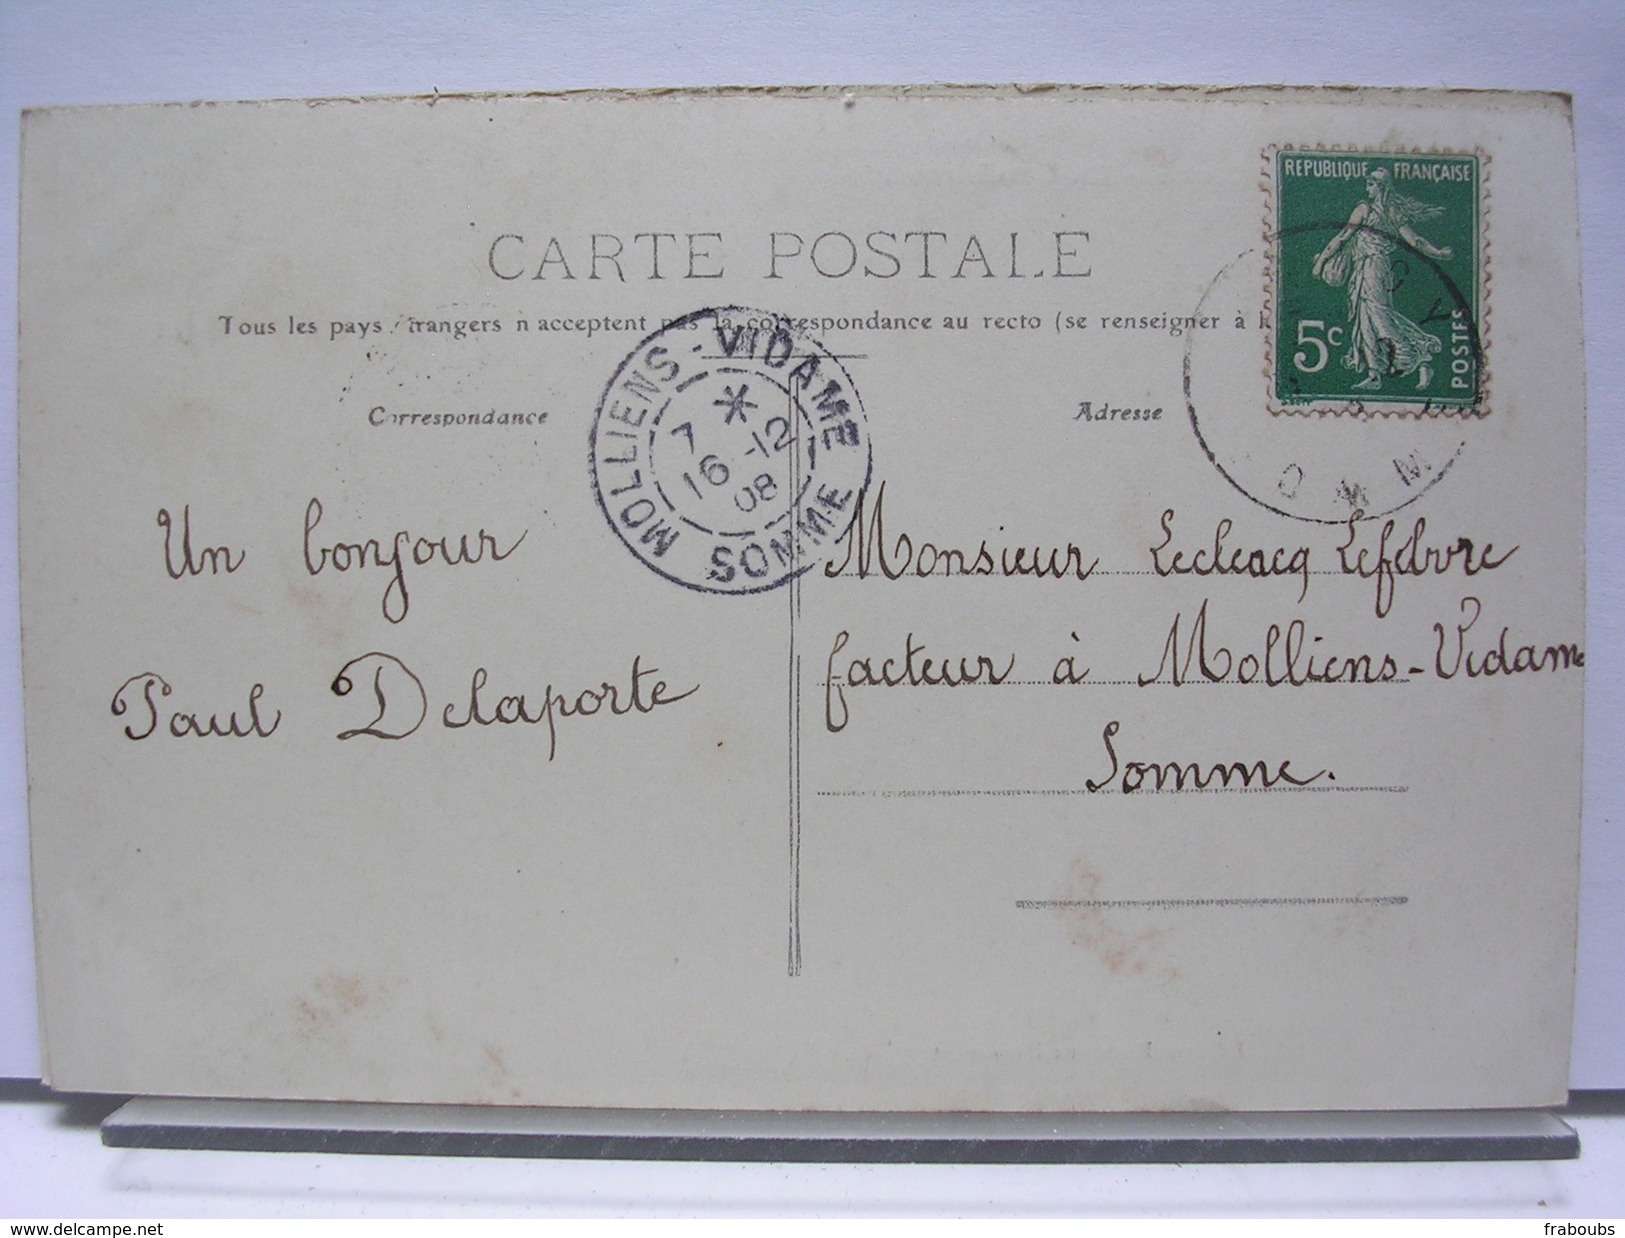 REPUBLIQUE FRANÇAISE
5c
POSTES
CARTE POSTALE
Tous les pays étrangers n'acceptent pas la correspondance au recto (se renseigner à l
Correspondance
Adresse
MOLLIENS-VIDAME
7 *
16-12
08
SOMME
Un bonjour
Paul Delaporte
Monsieur Leclercq Lefebvre
facteur à Molliens-Vidame
Somme.
www.delcampe.net
fraboubs